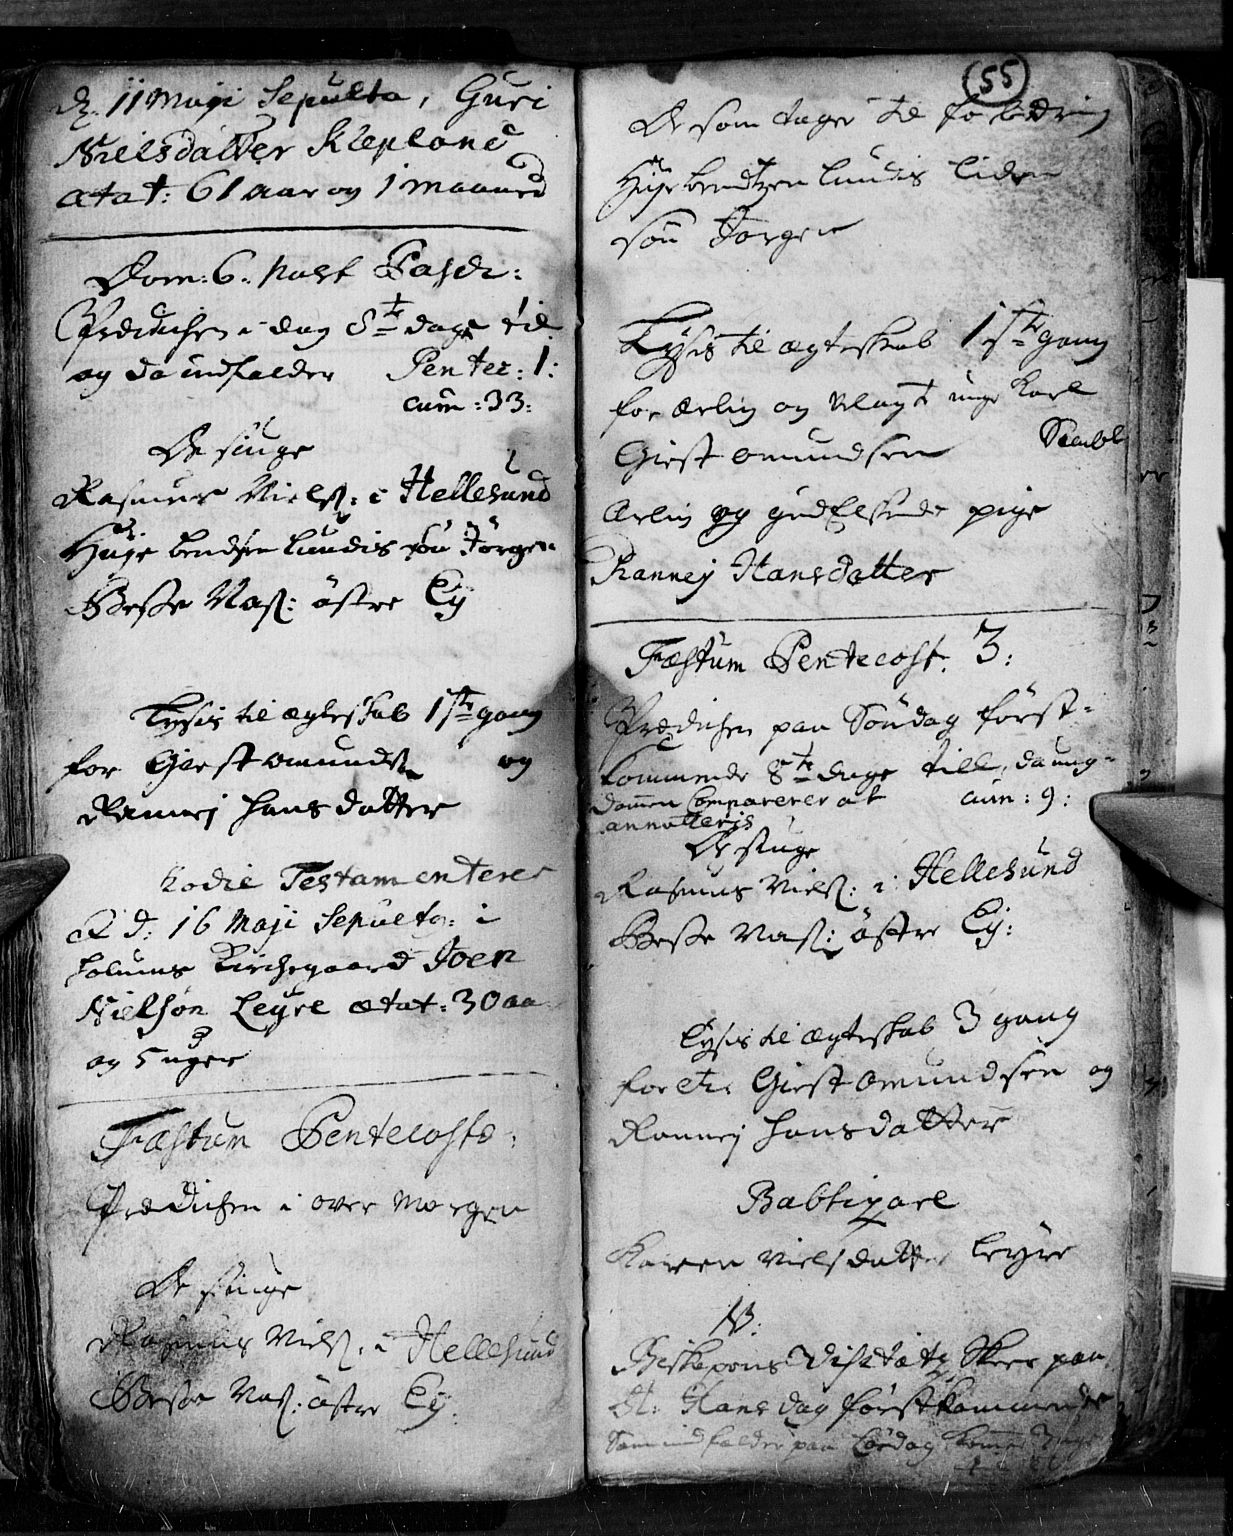 d. 11 Maji Sepulta, Guri
Nielsdatter Klepland
ætat: 61 aar og 1 maaned
Dom: 6: post Pasch:
Prædichen i dag 8te dage til
og da indfalder Pentec: 1:
cum: 33:
De siuge
Rasmus Niels: i Hellesund
Huje bendsen Lundis søn Jörgen
Beste Nas: östre Ey
Lysis til ægteskab 1ste gang
for Giest Omunds: og
Rannej Hansdatter
hodie Testamenterer
d: 16 Maji Sepulta: i
holums Kirchegaard Joen
Nielsøn Leyre ætat: 30 aa
og 5 uger
Fæstum Pentecoste:
Prædichen i over morgen
De siuge
Rasmus Niels: i Hellesund
Beste Nas: östre Ey:
55
De som tager til forbedring
Huje bendtzen Lundis liden
søn Jørgen
Lysis til ægteskab 1ste gang
for ærlig og velagt unge Karl
Giest Omundsen
ærlig og gudelskende pige
Rannej Hansdatter
Fæstum Pentecost. 3:
Prædichen paa Søndag först-
kommende 8te dage till, da ung-
dommen Comparerer at cum: 9:
annotteris
De siuge
Rasmus Niels: i Hellesund
Beste Nas: östre Ey:
Lysis til ægteskab 3 gang
for Giest Omundsen og
Rannej Hansdatter
Babtizare
Karen Nielsdatter Leyre
NB:
Biskepens Visitatz Skeer paa
St: Hans dag förstkommende
Som indfalder paa Lørdag